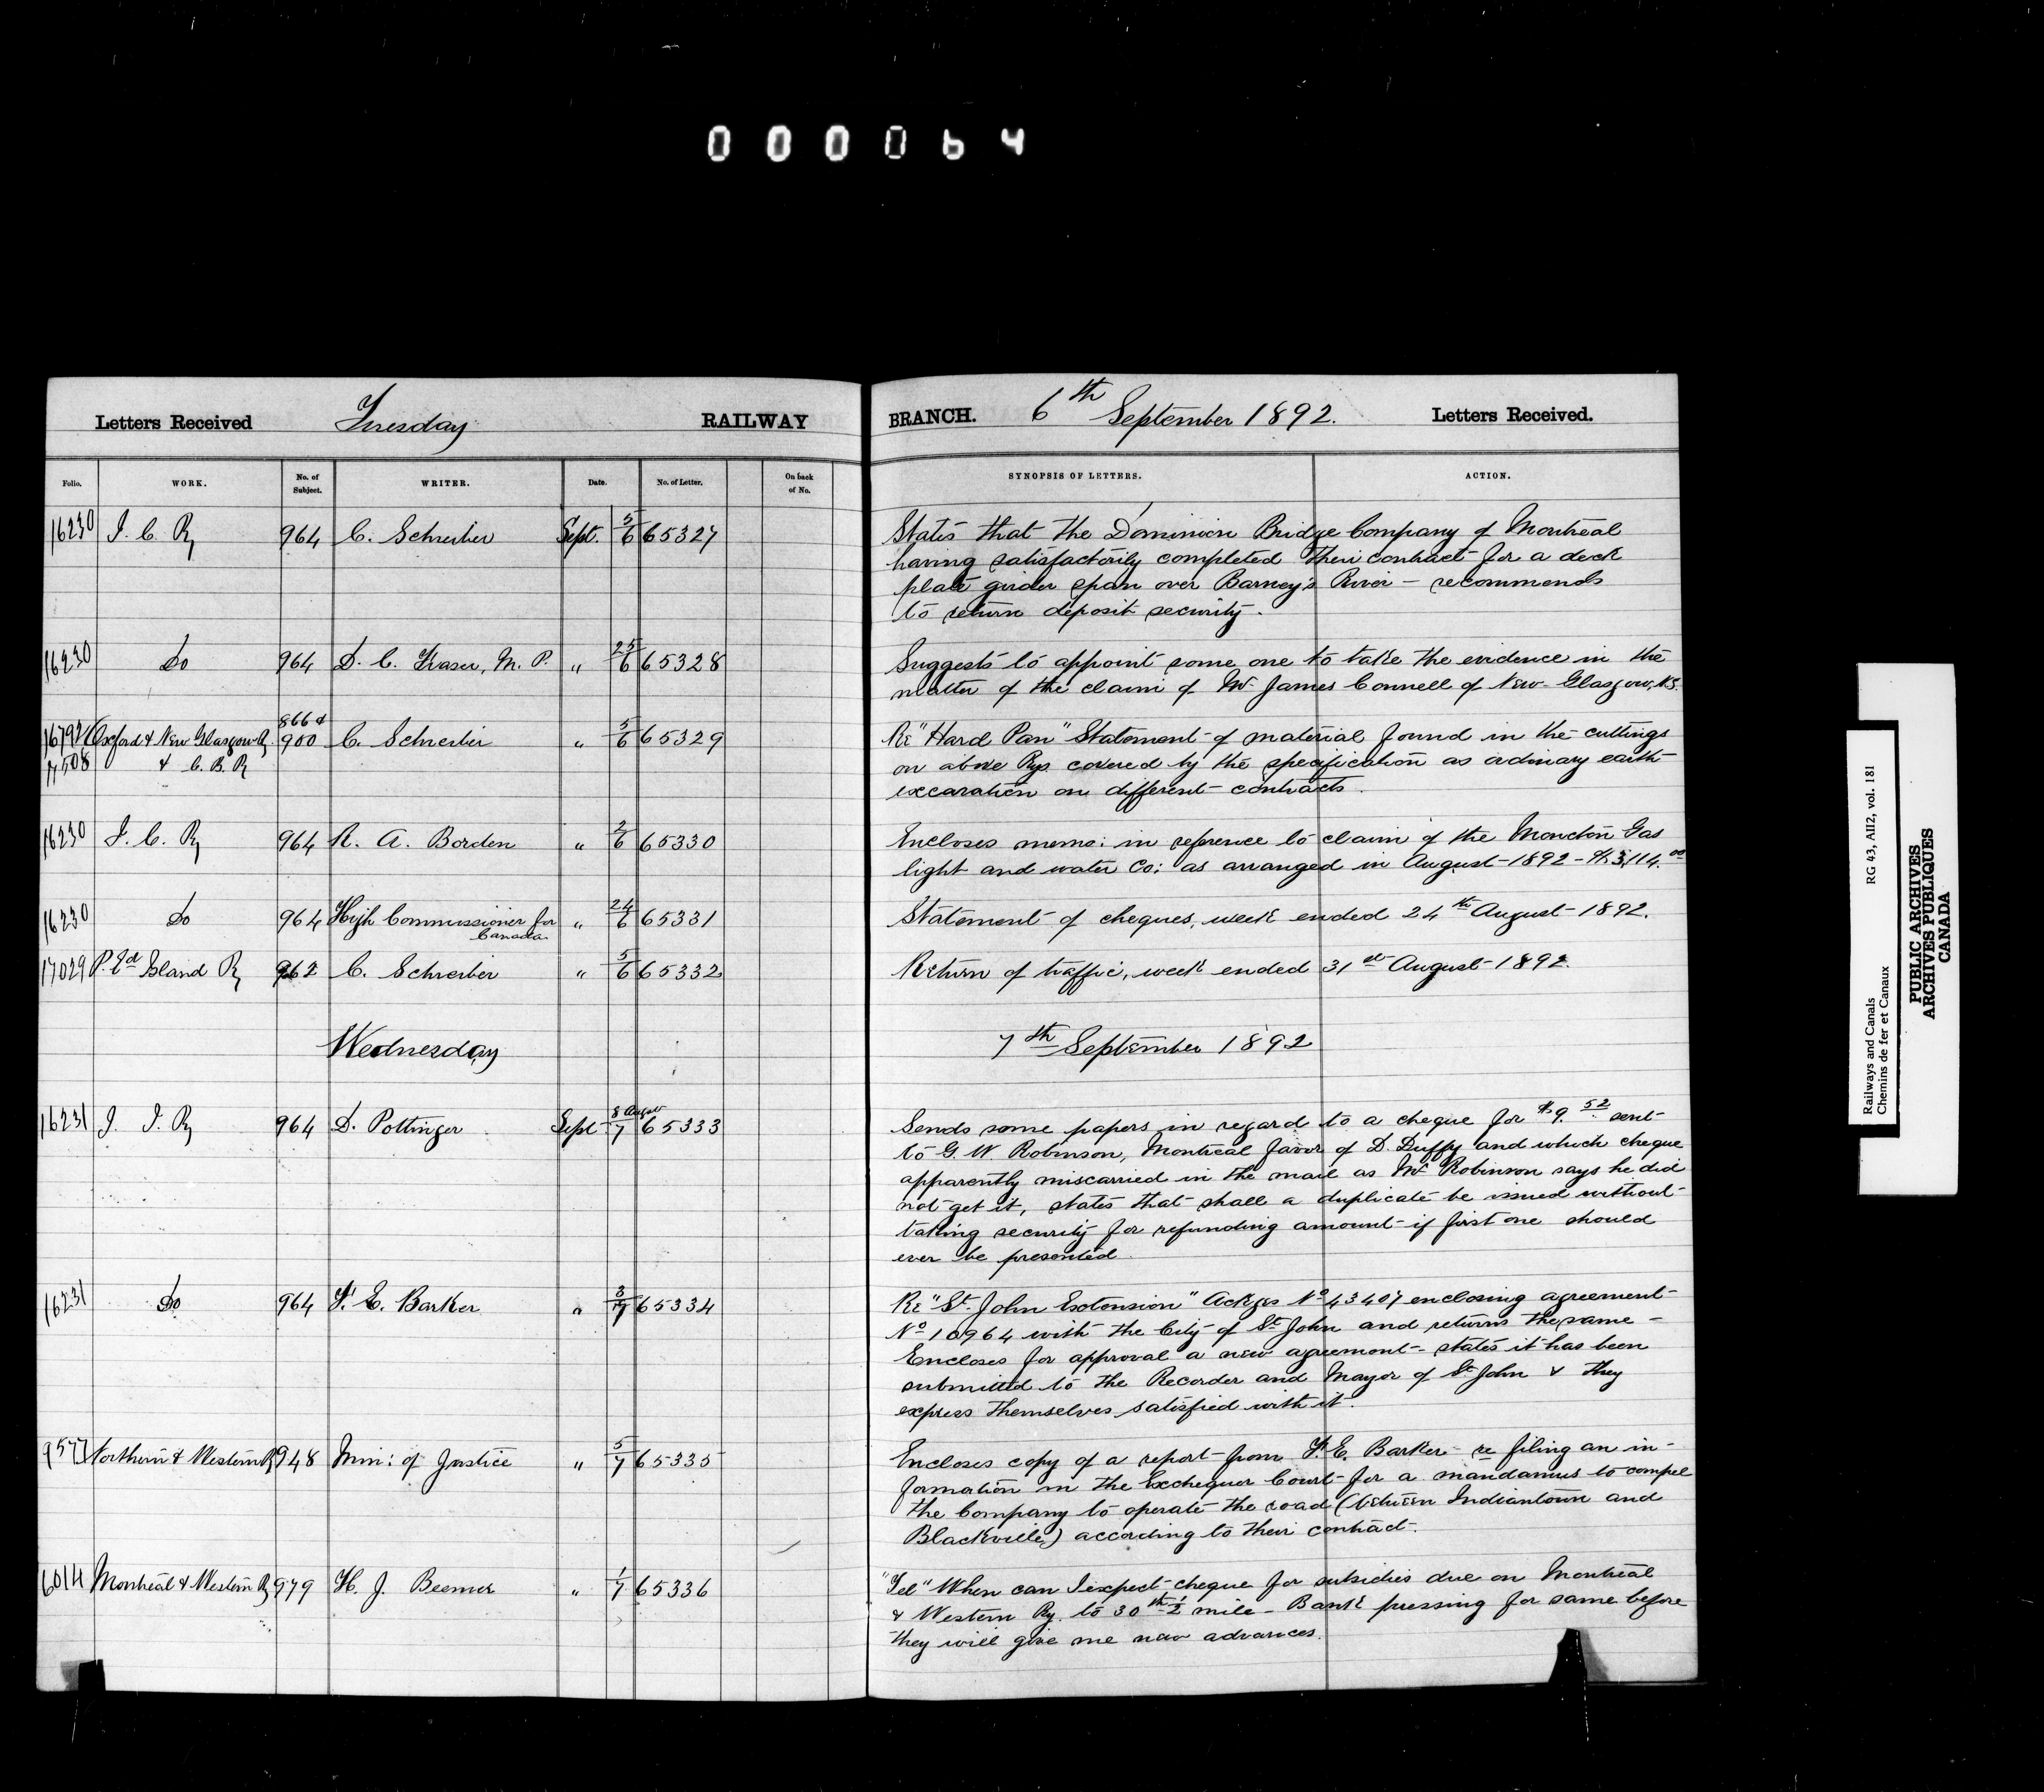 000064
Letters Received Tuesday RAILWAY BRANCH. 6th September 1892. Letters Received.
Folio. WORK. No. of Subject. WRITER. Date. No. of Letter. On back of No. SYNOPSIS OF LETTERS. ACTION.
16230 I. C. Ry 964 C. Schreiber Sept. 5/6 65327 States that the Dominion Bridge Company of Montreal
having satisfactorily completed their contract for a deck
plate girder span over Barney's River – recommends
to return deposit security.
16230 Do 964 D. C. Fraser, M. P. " 25/6 65328 Suggests to appoint some one to take the evidence in the
matter of the claim of Mr. James Connell of New Glasgow, N.S.
866 &
Oxford & New Glasgow Ry 900 C. Schreiber " 5/6 65329 Re "Hard Pan" Statement of material found in the cuttings
17508 & C. B. Ry on above Rys covered by the specification as ordinary earth
excavation on different contracts.
16230 I. C. Ry 964 R. A. Borden " 2/6 65330 Encloses memo: in reference to claim of the Moncton Gas
light and water Co: as arranged in August 1892 – $3,114.00
16230 Do 964 High Commissioner for " 24/6 65331 Statement of cheques, week ended 24th August 1892.
Canada
17029 P. Ed Island Ry 962 C. Schreiber " 5/6 65332 Return of traffic, week ended 31st August 1892.
Wednesday 7th September 1892
16231 I. I. Ry 964 D. Pottinger Sept 8 August/7 65333 Sends some papers in regard to a cheque for $9.52 sent
to G. W. Robinson, Montreal favor of D. Duffy and which cheque
apparently miscarried in the mail as Mr Robinson says he did
not get it, states that shall a duplicate be issued without
taking security for refunding amount if first one should
ever be presented.
16231 Do 964 F. E. Barker " 3/7 65334 Re "St. John Extension" Ackges No 43407 enclosing agreement
No 10964 with the City of St John and returns the same –
Encloses for approval a new agreement – states it has been
submitted to the Recorder and Mayor of St John & they
express themselves satisfied with it.
9577 Northern & Western Ry 948 Min: of Justice " 5/7 65335 Encloses copy of a report from F. E. Barker re filing an in-
formation in the Exchequer Court for a mandamus to compel
the Company to operate the road (between Indiantown and
Blackville) according to their contract.
6014 Montreal & Western Ry 979 H. J. Beemer " 1/7 65336 "Tel" When can I expect cheque for subsidies due on Montreal
& Western Ry. to 30th 1/2 mile – Bank pressing for same before
they will give me new advances.
Railways and Canals RG 43, AII2, vol. 181
Chemins de fer et Canaux
PUBLIC ARCHIVES
ARCHIVES PUBLIQUES
CANADA